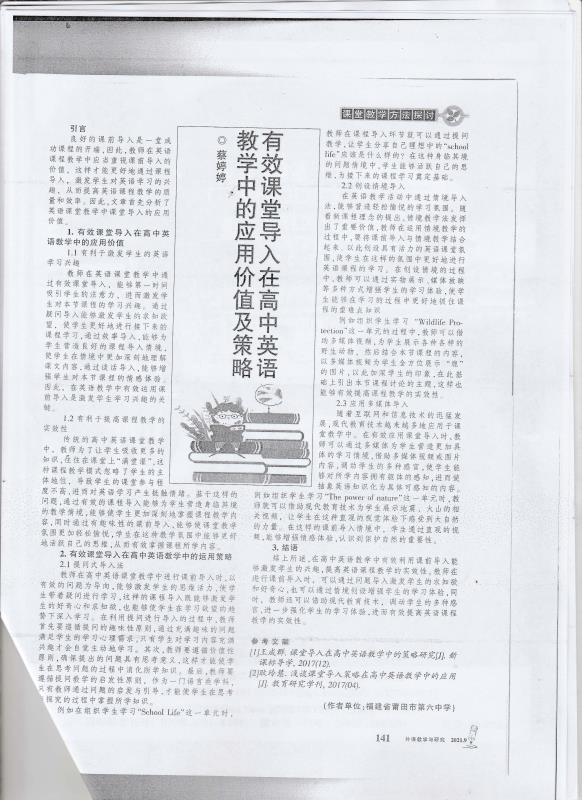 课堂教学方法探讨
有效课堂导入在高中英语
教学中的应用价值及策略
◎ 蔡婷婷
引言
良好的课前导入是一堂成
功课程的开端,因此,教师在英语
课程教学中应当重视课前导入的
价值。这样才能更好地通过课程
导入，激发学生对英语学习的兴
趣，从而提高英语课程教学的质
量和效率。因此,文章首先分析了
英语课堂教学中课堂导入的应用
价值。
1. 有效课堂导入在高中英
语教学中的应用价值
1.1 有利于激发学生的英语
学习兴趣
教师在英语课堂教学中通
过有效课堂导入，能够第一时间
吸引学生的注意力，进而激发学
生对本节课程的学习兴趣。通过
疑问导入能够激发学生的求知欲
望，使学生更好地进行接下来的
课程学习,通过故事导入,能够为
学生营造良好的课程导入情境，
使学生在情境中更加深刻地理解
课文内容,通过谈话导入,能够增
强学生对本节课程的情感体验。
因此，在英语教学中有效运用课
前导入是激发学生学习兴趣的关
键。
1.2 有利于提高课程教学的
实效性
传统的高中英语课堂教学
中，教师为了让学生吸收更多的
知识,在往在课堂上“满堂灌”,这
种课程教学模式忽略了学生的主
体地位，导致学生的课堂参与程
度不高,进而对英语学习产生抵触情绪。基于这样的
问题,通过有效的课程导入能够为学生营造身临其境
的教学情境,能够使学生更加深刻地掌握课程教学内
容,同时通过有趣味性的课前导入,能够使课堂教学
氛围更加轻松愉悦,学生在这种教学氛围中能够更好
地活跃自己的思维,从而有效掌握课程所学内容。
2. 有效课堂导入在高中英语教学中的运用策略
2.1 提问式导入法
教师在高中英语课堂教学中进行课前导入时,以
有效的问题为导向,能够激发学生的思维活力,使学
生带着疑问进行学习,这样的课程导入既能够激发学
生的好奇心和求知欲,也能够使学生在学习欲望的趋
势下深入学习。在利用提问进行导入的过程中,教师
首先要遵循提问的趣味性原则,通过充满趣味的问题
满足学生的学习心理需求,只有学生对学习内容充满
兴趣才会自觉主动地学习。其次,教师要遵循价值性
原则,确保提出的问题具有思考意义,这样才能使学
生在思考问题的过程中消化所学知识。最后,教师要
遵循提问教学的启发性原则，作为一门语言类学科，
只有教师通过问题的启发与引导,才能使学生在思考
探究的过程中掌握所学知识。
例如在组织学生学习“School Life”这一单元时，
教师在课程导入环节就可以通过提问
教学,让学生分享自己理想中的“school
life”应该是什么样的？在这种身临其境
的问题情境中,学生能够活跃自己的思
维,为接下来的课程学习奠定基础。
2.2 创设情境导入
在英语教学活动中通过情境导入
法,能够营造轻松愉悦的学习氛围。随
着新课程理念的提出,情境教学法发挥
出了重要价值,教师在运用情境教学的
过程中,要将课前导入与情境教学结合
起来、以此创设具有活力的英语课堂氛
围,使学生在这样的氛围中更好地进行
英语课程的学习。在创设情境的过程
中,教师可以通过实物展示、媒体放映
等多种方式增强学生的学习体验,使学
生能够在学习的过程中更好地抓住课
程的重难点知识
例如组织学生学习 “Wildlife Pro-
tection”这一单元的过程中,教师可以借
助多媒体视频,为学生展示各种各样的
野生动物，然后结合本节课程的内容,
以多媒体视频为学生全方位展示“鹿”
的图片,以此加深学生的印象,在此基
础上引出本节课程讨论的主题,这样也
能够有效提高课程教学的实效性。
2.3 应用多媒体导入
随着互联网和信息技术的迅猛发
展,现代教育技术越来越多地应用于课
堂教学中。在有效应用课堂导入时,教
师可以通过多媒体为学生营造更加具
体的学习情境,借助多媒体视频或图片
内容,调动学生的多种感官,使学生能
够对所学内容拥有载体的感知,进而使
抽象英语知识化为具体可感知的内容。
例如组织学生学习“The power of nature”这一单元时,教
师就可以借助现代教育技术为学生展示地震、火山的相
关视频，让学生在这种直观的视觉体验下感受到大自然
的力量。在这样的课前导入情境中，学生通过直观的视
频,能够增强情感体验,认识到保护自然的重要性。
3. 结语
综上所述,在高中英语教学中有效利用课前导入能
够激发学生的兴趣,提高英语课程教学的实效性,教师在
进行课前导入时，可以通过问题导入激发学生的求知欲
和好奇心,也可以通过情境创设增强学生的学习体验,同
时，教师还可以借助现代教育技术，调动学生的多种感
官,进一步强化学生的学习体验,进而有效提高英语课程
教学的实效性。
参考文献
[1]王成群.课堂导入在高中英语教学中的策略研究[J].新
课标导学,2017(12).
[2]欧珍慧.浅谈课堂导入策略在高中英语教学中的应用
[J].教育研究学刊,2017(04).
(作者单位:福建省莆田市第六中学)
141 外课教学与研究 2021.9